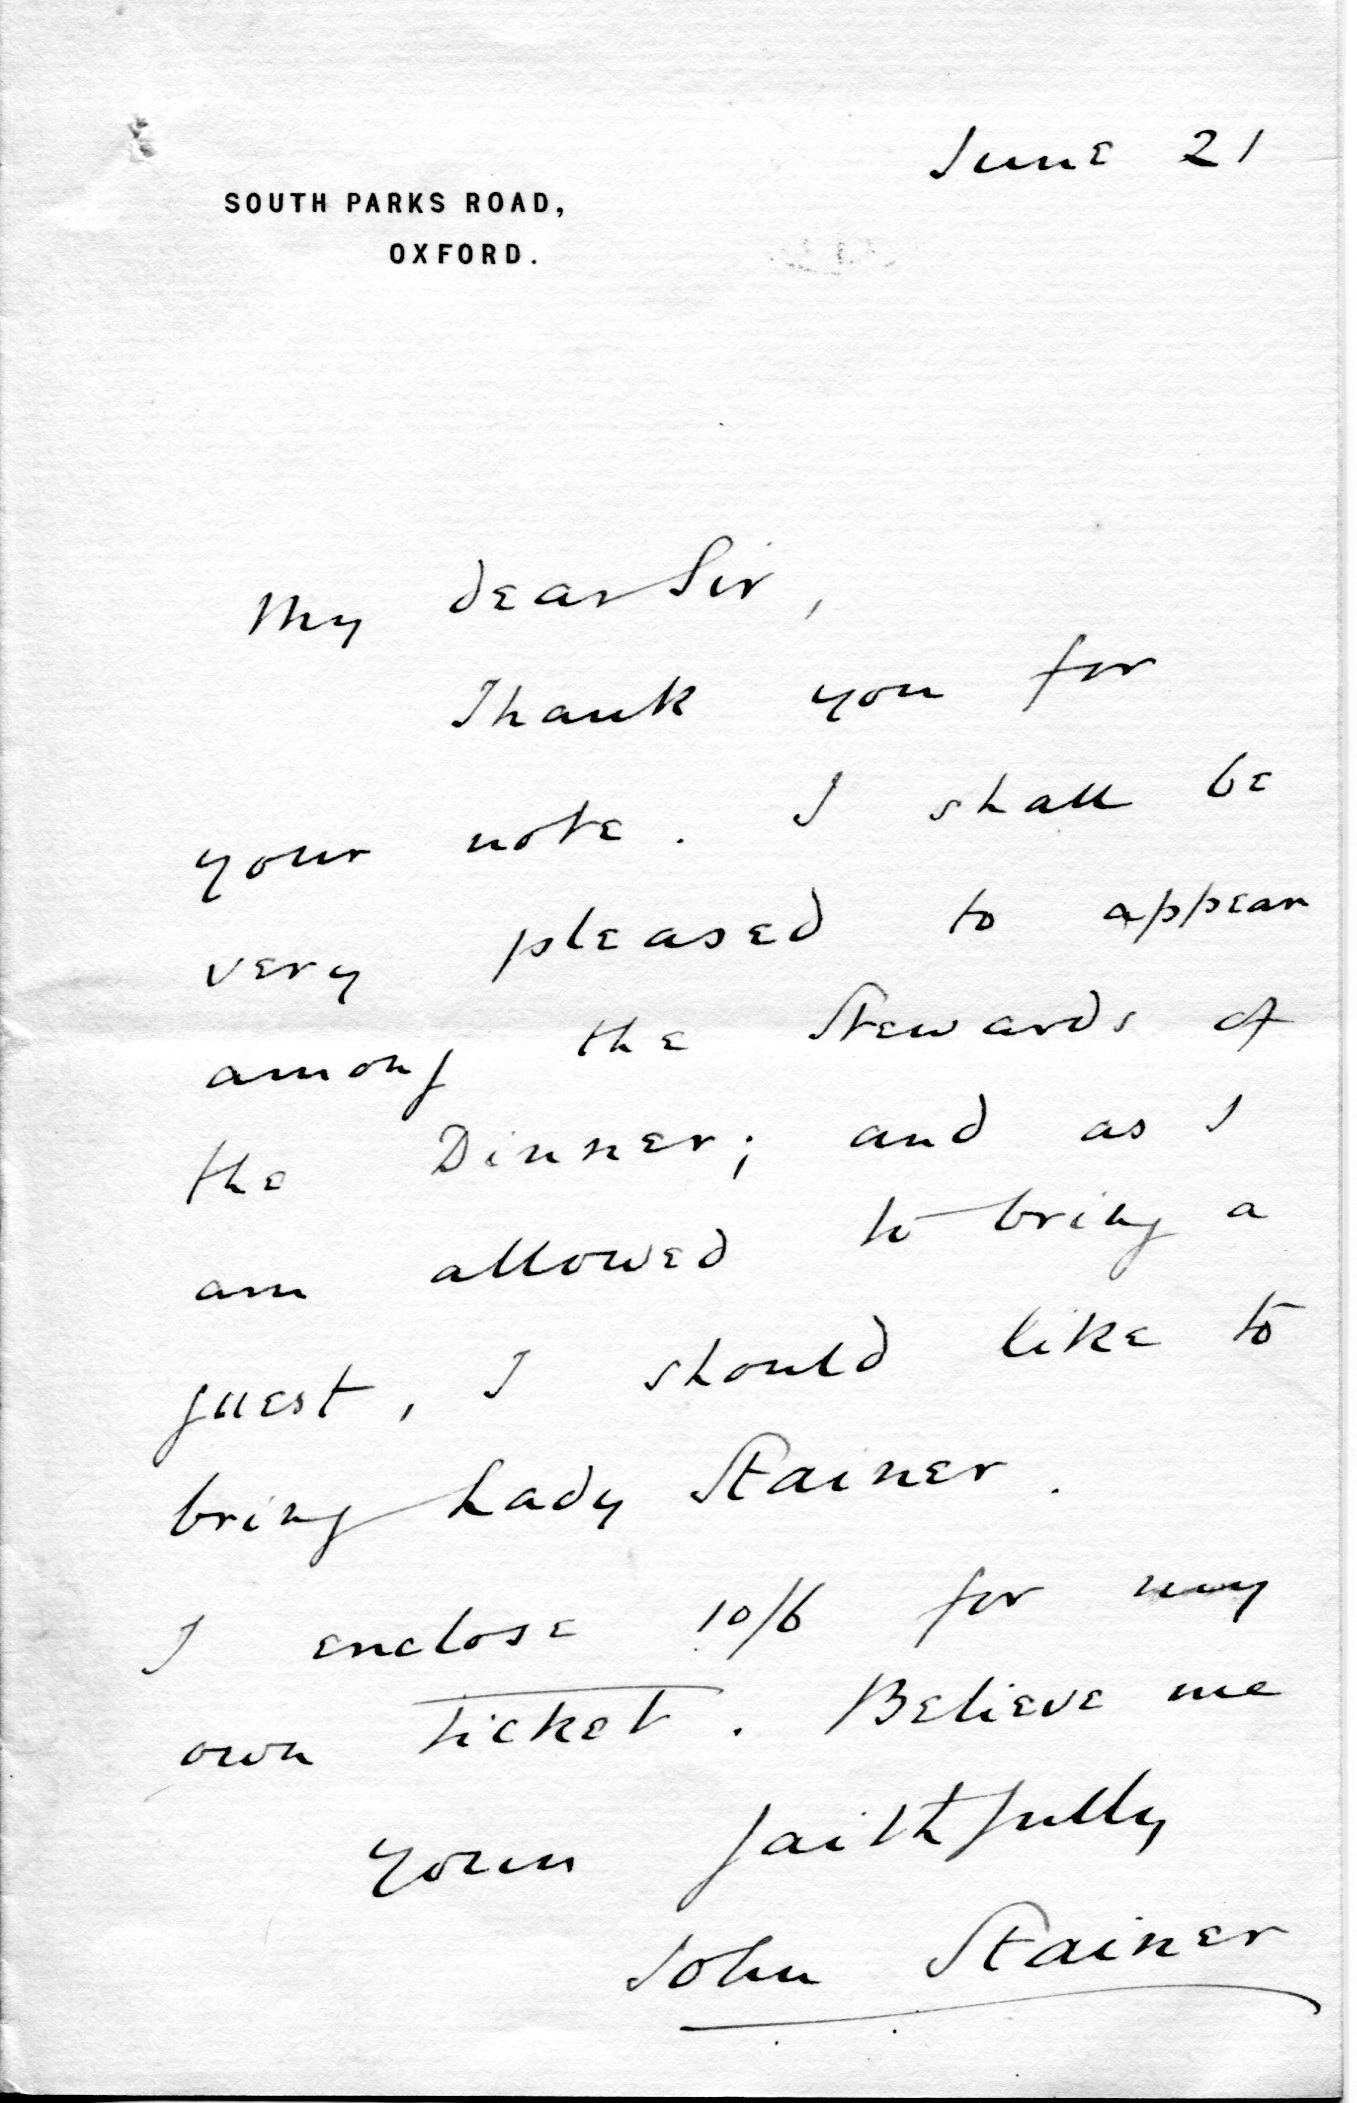 June 21
SOUTH PARKS ROAD,
OXFORD.
My dear Sir,
Thank you for
your note. I shall be
very pleased to appear
among the Stewards of
the Dinner; and as I
am allowed to bring a
guest, I should like to
bring Lady Stainer.
I enclose 10/6 for my
own ticket. Believe me
yours faithfully
John Stainer